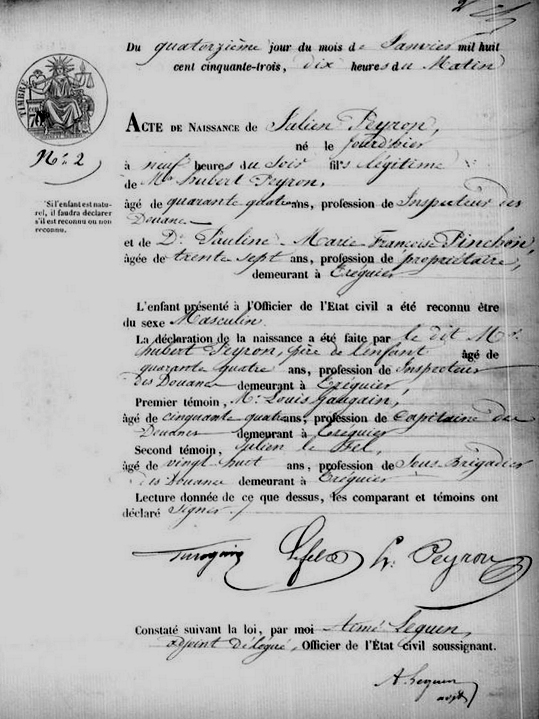 Du quatorzième jour du mois de Janvier mil huit
cent cinquante-trois, dix heures du Matin
TIMBRE
N.° 2
ACTE DE NAISSANCE de Julien Peyron,
né le jour d'hier
à neuf heures du Soir fils légitime
de Mr hubert Peyron,
âgé de quarante quatre ans, profession de Inspecteur des
Douane
et de De Pauline Marie Françoise Pinchon,
âgée de trente sept ans, profession de propriétaire,
demeurant à Tréguier
Si l'enfant est natu-
rel, il faudra déclarer
s'il est reconnu ou non
reconnu.
L'enfant présenté à l'Officier de l'Etat civil a été reconnu être
du sexe Masculin.
La déclaration de la naissance a été faite par le dit Mr
hubert Peyron, père de l'enfant âgé de
quarante quatre ans, profession de Inspecteur
des Douane demeurant à Tréguier,
Premier témoin, Mr Louis
âgé de cinquante quatre ans, profession de Capitaine des
Douanes demeurant à Tréguier
Second témoin, Julien le Fel,
âgé de vingt huit ans, profession de Sous Brigadier
des Douane demeurant à Tréguier
Lecture donnée de ce que dessus, les comparant et témoins ont
déclaré signer./
Lefel h. Peyron
Constaté suivant la loi, par moi Aimé Leguen,
adjoint délégué, Officier de l'État civil soussignant.
A. Leguen
adjt